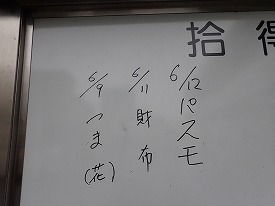 拾得
6/12 パスモ
6/11 財布
6/9 つま(花)